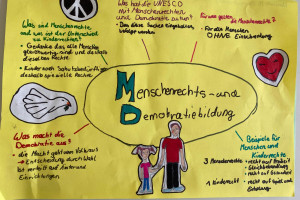 Was hat die UNESCO
mit Menschenrechten
und Demokratie zu tun?
Für wen gelten die Menschenrechte?
• Für alle Menschen
OHNE Einschränkung
Was sind Menschenrechte,
und was ist der Unterschied
zu Kinderrechten?
• Gedanke das alle Menschen
gleichwertig sind und deshalb
dieselben Rechte
• Kinder
deshalb spezielle Rechte
Menschenrechts- und
Demokratiebildung
Was macht die
Demokratie aus?
• die Macht geht vom Volk aus
→ Entscheidung durch Wahl
Einrichtungen
Beispiele für
Menschen und
Kinderrechte
3 Menschenrechte
• recht auf Freiheit
• Gleichbehandlung
• recht auf Gesundheit
1 Kinderrecht
• recht auf Spiel und
Erholung